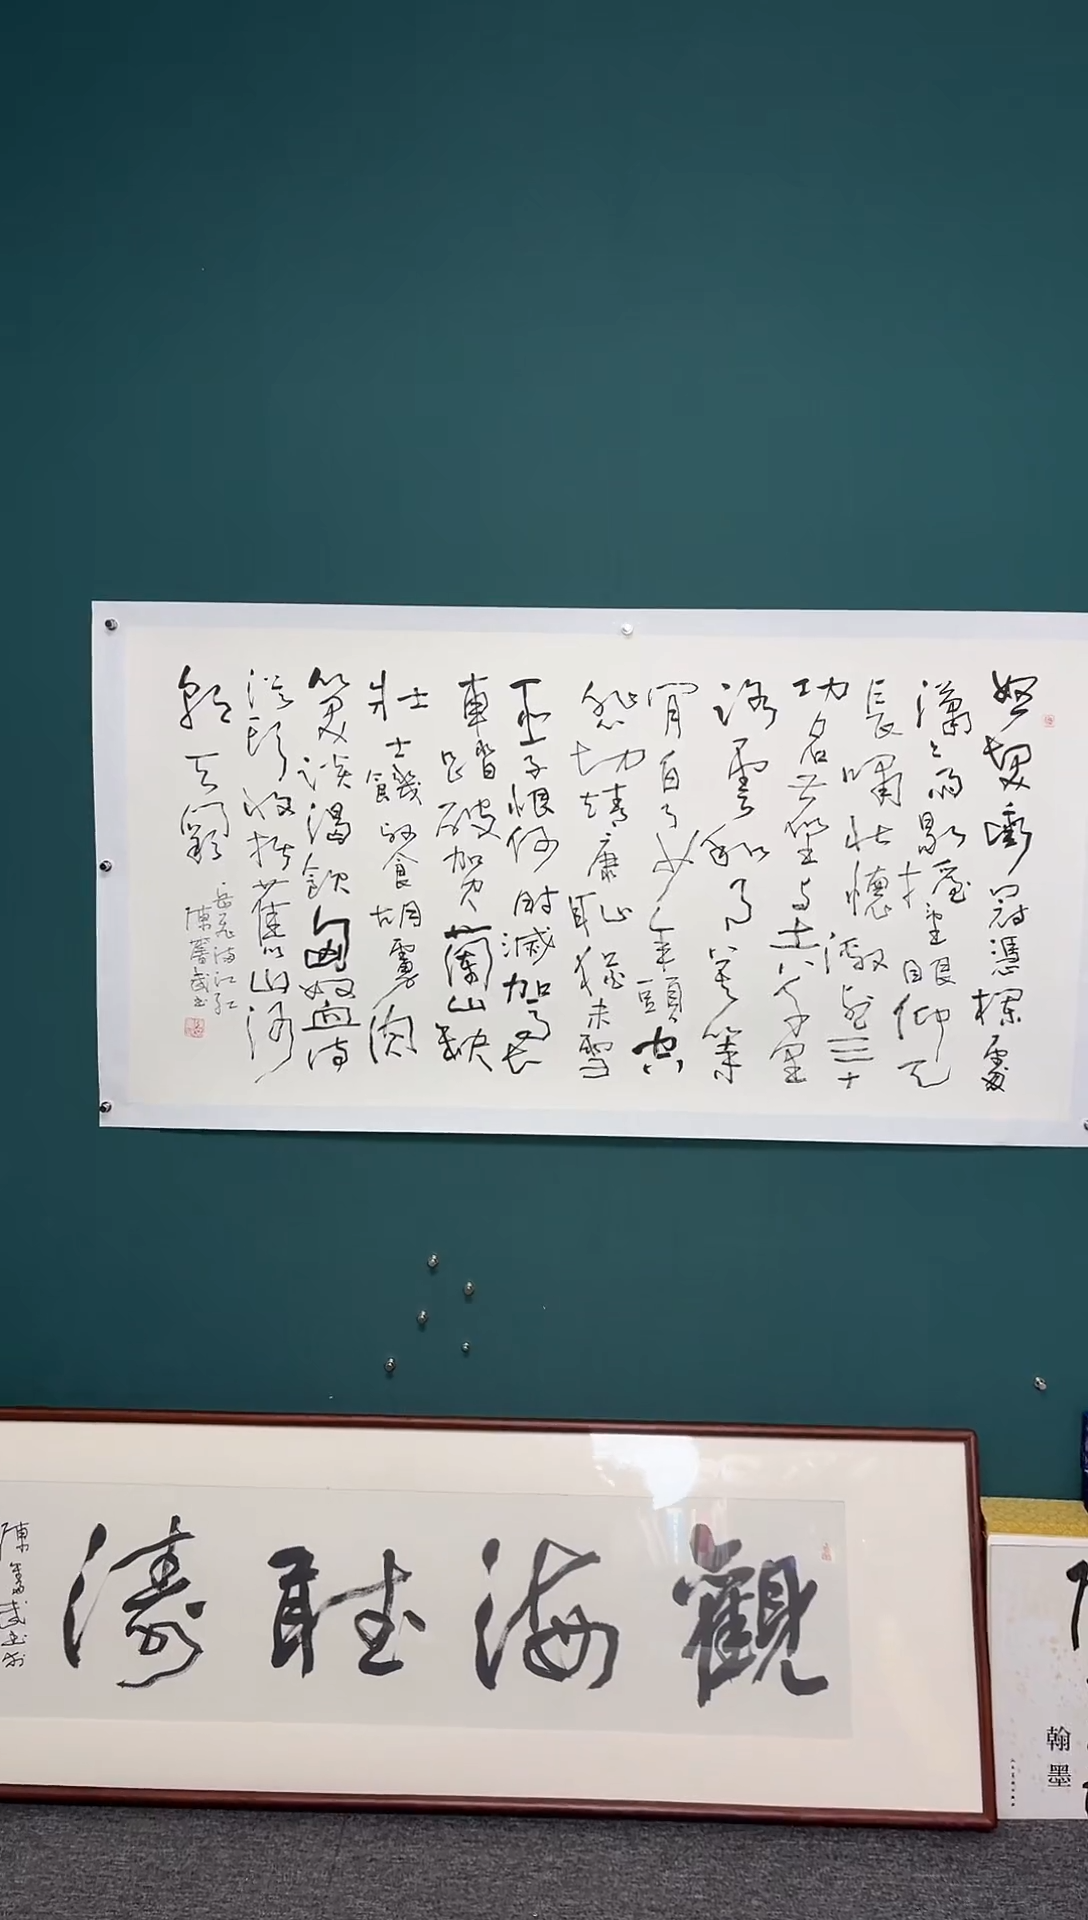 怒髮衝冠憑欄處
瀟々雨歇抬望眼仰天
長嘯壯懷激烈三十
功名塵與土八千里
路雲和月莫等
閒白了少年頭空
悲切靖康恥猶未雪
臣子恨何時滅駕長
車踏破賀蘭山缺
壯士饑餐胡虜肉
笑談渴飲匈奴血待
從頭收拾舊山河
朝天闕
岳飛滿江紅
陳武書
觀海聽濤
翰墨